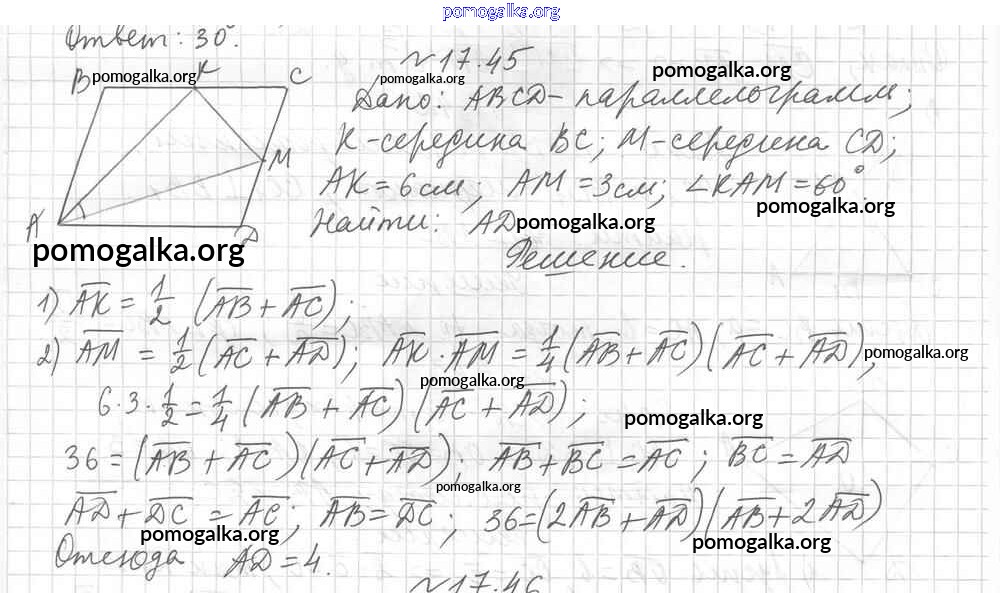 pomogalka.org
Ответ: 30°.
№17.45
B pomogalka.org K C
pomogalka.org
pomogalka.org
Дано: ABCD - параллелограмм;
K-середина BC; M-середина CD;
M
AK = 6 см; AM = 3 см; ∠KAM = 60°.
pomogalka.org
A D
Найти: AD
pomogalka.org
pomogalka.org
Решение.
1) \overline{AK} = 1/2 (\overline{AB} + \overline{AC});
2) \overline{AM} = 1/2 (\overline{AC} + \overline{AD}); \overline{AK} · \overline{AM} = 1/4 (\overline{AB} + \overline{AC})(\overline{AC} + \overline{AD});
pomogalka.org
pomogalka.org
6·3·1/2 = 1/4 (\overline{AB} + \overline{AC})(\overline{AC} + \overline{AD});
pomogalka.org
36 = (\overline{AB} + \overline{AC})(\overline{AC} + \overline{AD}); \overline{AB} + \overline{BC} = \overline{AC}; \overline{BC} = \overline{AD}
pomogalka.org
\overline{AD} + \overline{DC} = \overline{AC}; \overline{AB} = \overline{DC}; 36 = (2\overline{AB} + \overline{AD})(\overline{AB} + 2\overline{AD})
pomogalka.org
pomogalka.org
Отсюда AD = 4.
№17.46